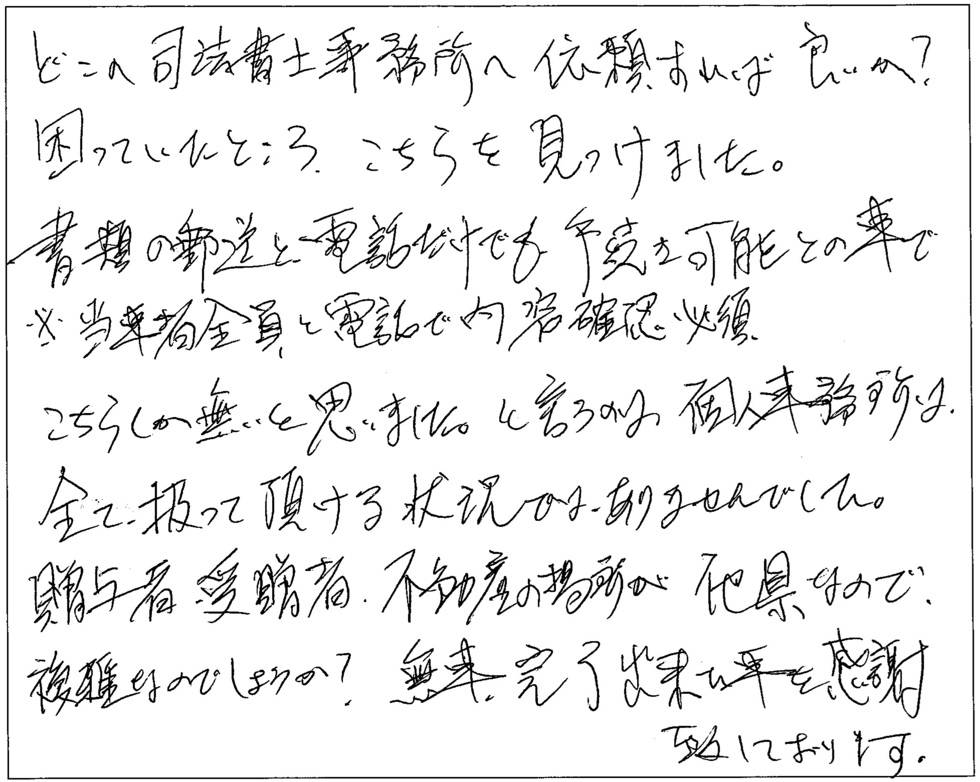 どこの司法書士事務所へ依頼すれば良いか？
困っていたところ、こちらを見つけました。
書類の郵送と、電話だけでも手続き可能との事で
※当事者全員と電話で内容確認必須
こちらしか無いと思いました。と言うのは、個人事務所は、
全て扱って頂ける状況ではありませんでした。
贈与者、受贈者、不動産の場所が他県なので、
複雑なのでしょうか？無事、完了出来た事を感謝
致しております。